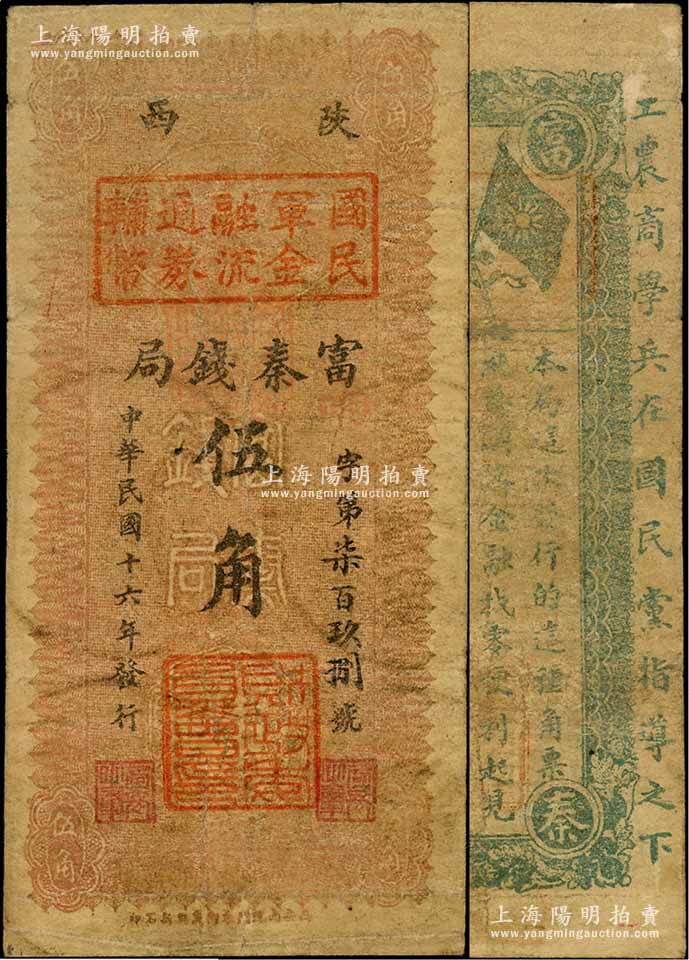 上海陽明拍賣
www.yangmingauction.com
陝西
伍角
國民軍金融流通券輔幣
富秦錢局
字第柒百玖捌號
伍角
中華民國十六年發行
伍角
上海陽明拍賣
www.yangmingauction.com
工農商學兵在國民黨指導之下
富
秦
本局這次發行的這種角票
金融找零便利起見
上海陽明拍賣
www.yangmingauction.com